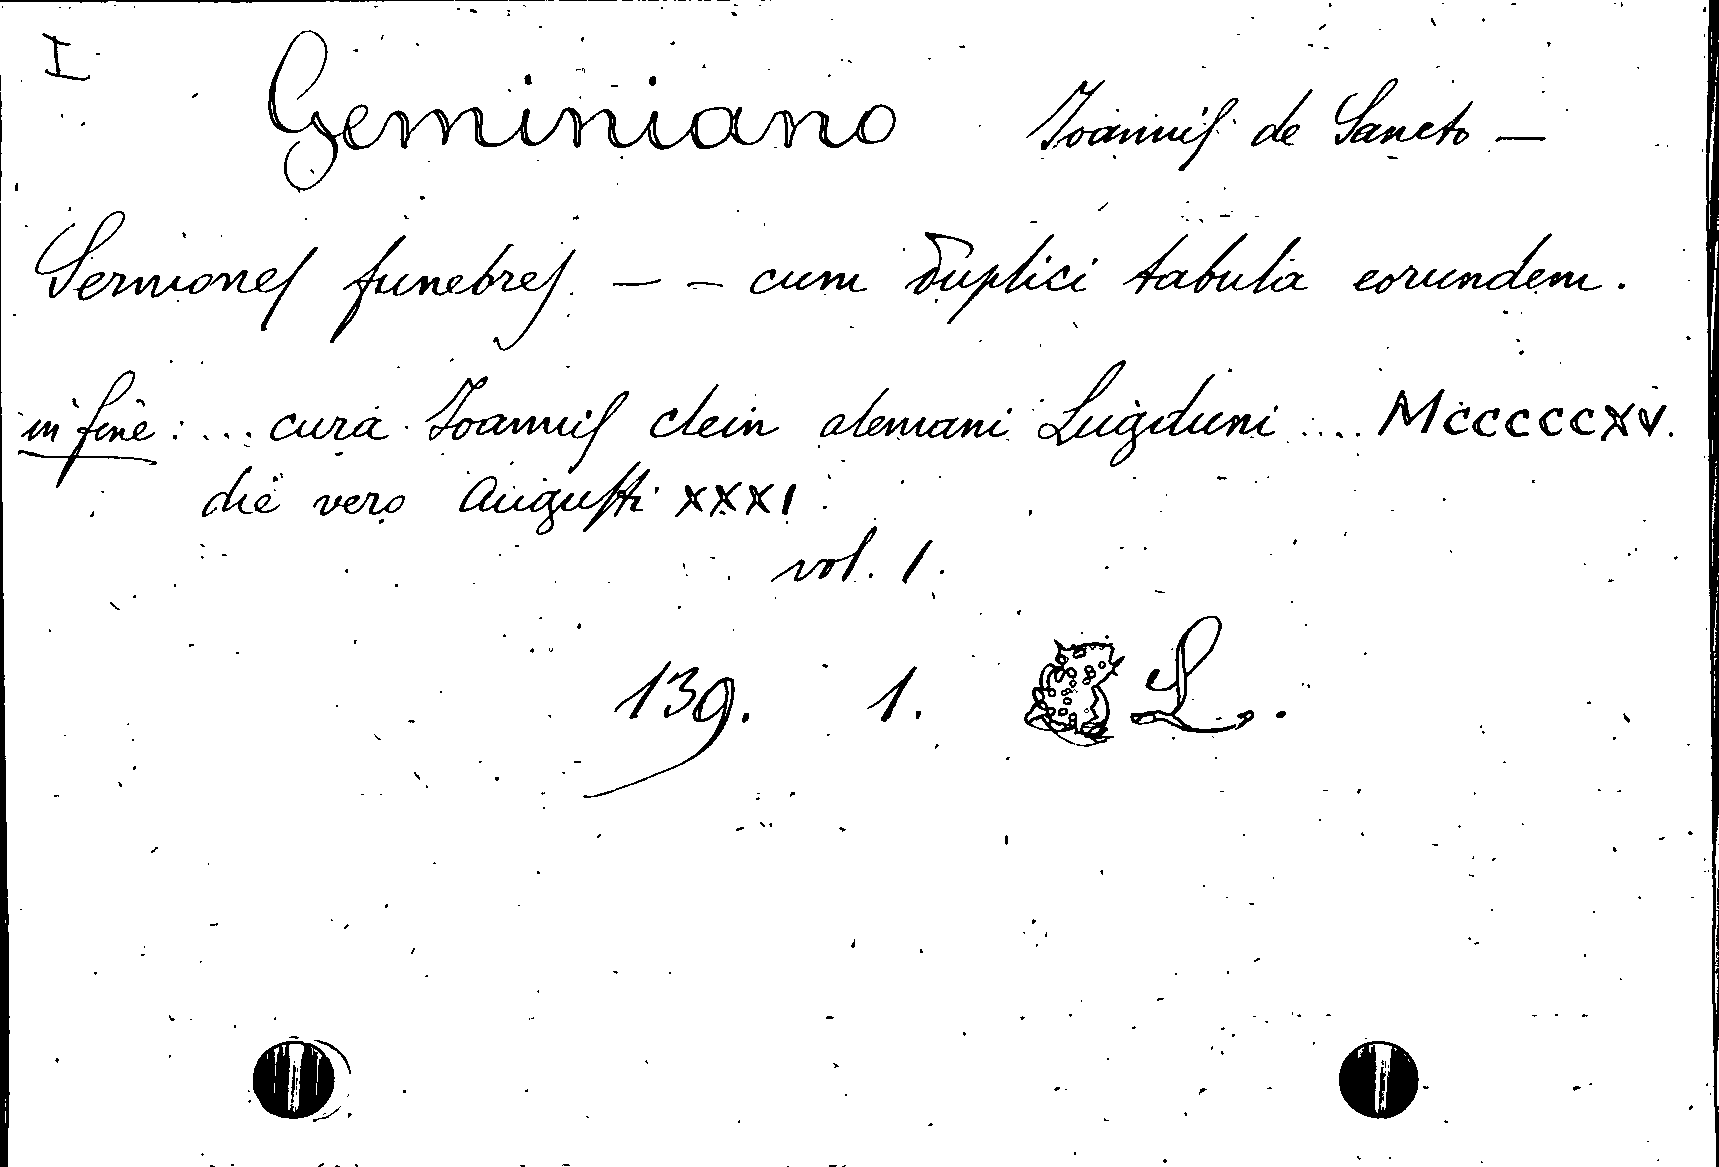 I
Geminiano Joannis de Sancto —
Sermones funebres. — - cum duplici tabula eorundem.
in fine: ... cura Joannis clein alemani Lugduni .... MCCCCCXV.
die vero Augusti XXXI
vol. 1.
139. 1. L.